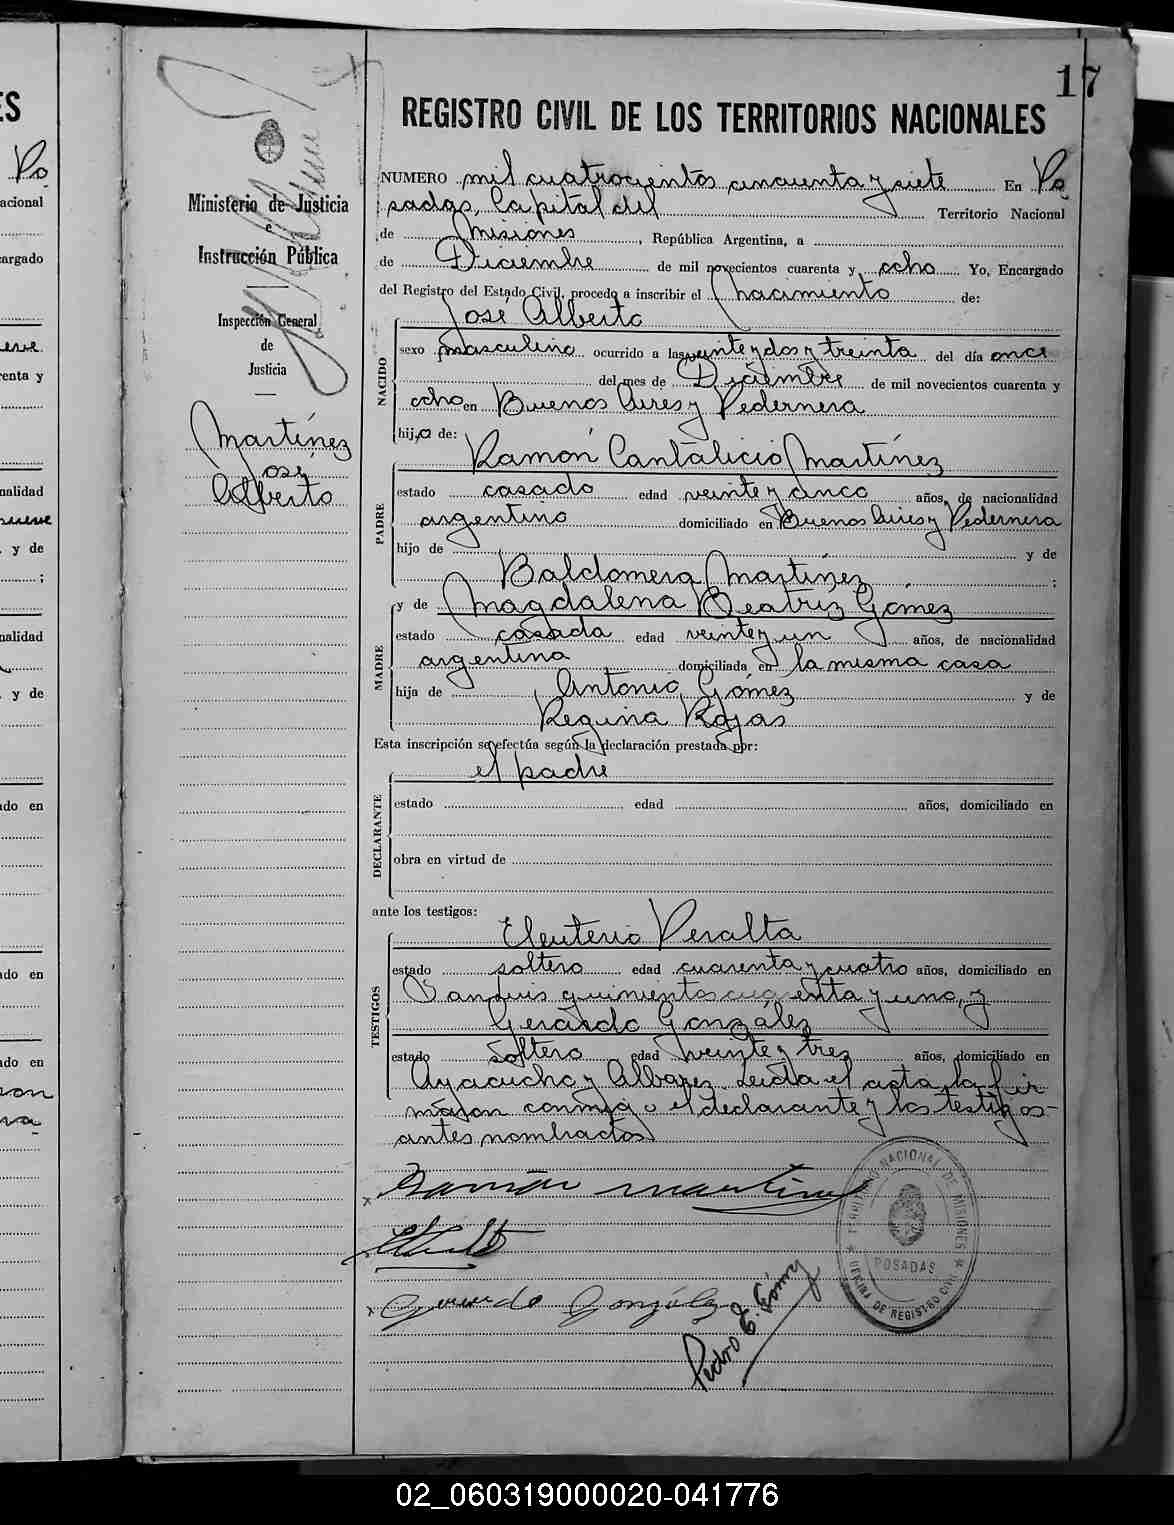 17
REGISTRO CIVIL DE LOS TERRITORIOS NACIONALES
NUMERO mil cuatrocientos cincuenta y siete En Po
sadas, Capital del Territorio Nacional
de Misiones, República Argentina, a
de Diciembre de mil novecientos cuarenta y ocho Yo, Encargado
del Registro del Estado Civil, procedo a inscribir el nacimiento de:
NACIDO
José Alberto
sexo masculino ocurrido a las veinte y dos y treinta del día once
del mes de Diciembre de mil novecientos cuarenta y
ocho en Buenos Aires y Pedernera
hijo de:
PADRE
Ramón Cantalicio Martínez
estado casado edad veinte y cinco años, de nacionalidad
argentino domiciliado en Buenos Aires y Pedernera
hijo de y de
Baldomera Martínez ;
MADRE
y de Magdalena Beatríz Gómez
estado casada edad veinte y un años, de nacionalidad
argentina domiciliada en la misma casa
hija de Antonio Gómez y de
Regina Rojas
Esta inscripción se efectúa según la declaración prestada por:
el padre
DECLARANTE
estado edad años, domiciliado en
obra en virtud de
ante los testigos:
TESTIGOS
Eleuterio Peralta
estado soltero edad cuarenta y cuatro años, domiciliado en
San Luis quinientos cuarenta y uno, y
Gerardo González
estado soltero edad veinte y tres años, domiciliado en
Ayacucho y Albarez. Leída el acta la fir
máron conmigo el declarante y los testigos
antes nombrados
Ramón Martínez
Gerardo González
Pedro E. Gómez
TERRITORIO NACIONAL DE MISIONES
POSADAS
OFICINA DE REGISTRO CIVIL
Ministerio de Justicia
e
Instrucción Pública
Inspección General
de
Justicia
Martínez
José
Alberto
ES
Po
acional
argado
enta y
nalidad
y de
;
nalidad
y de
do en
do en
do en
02_060319000020-041776